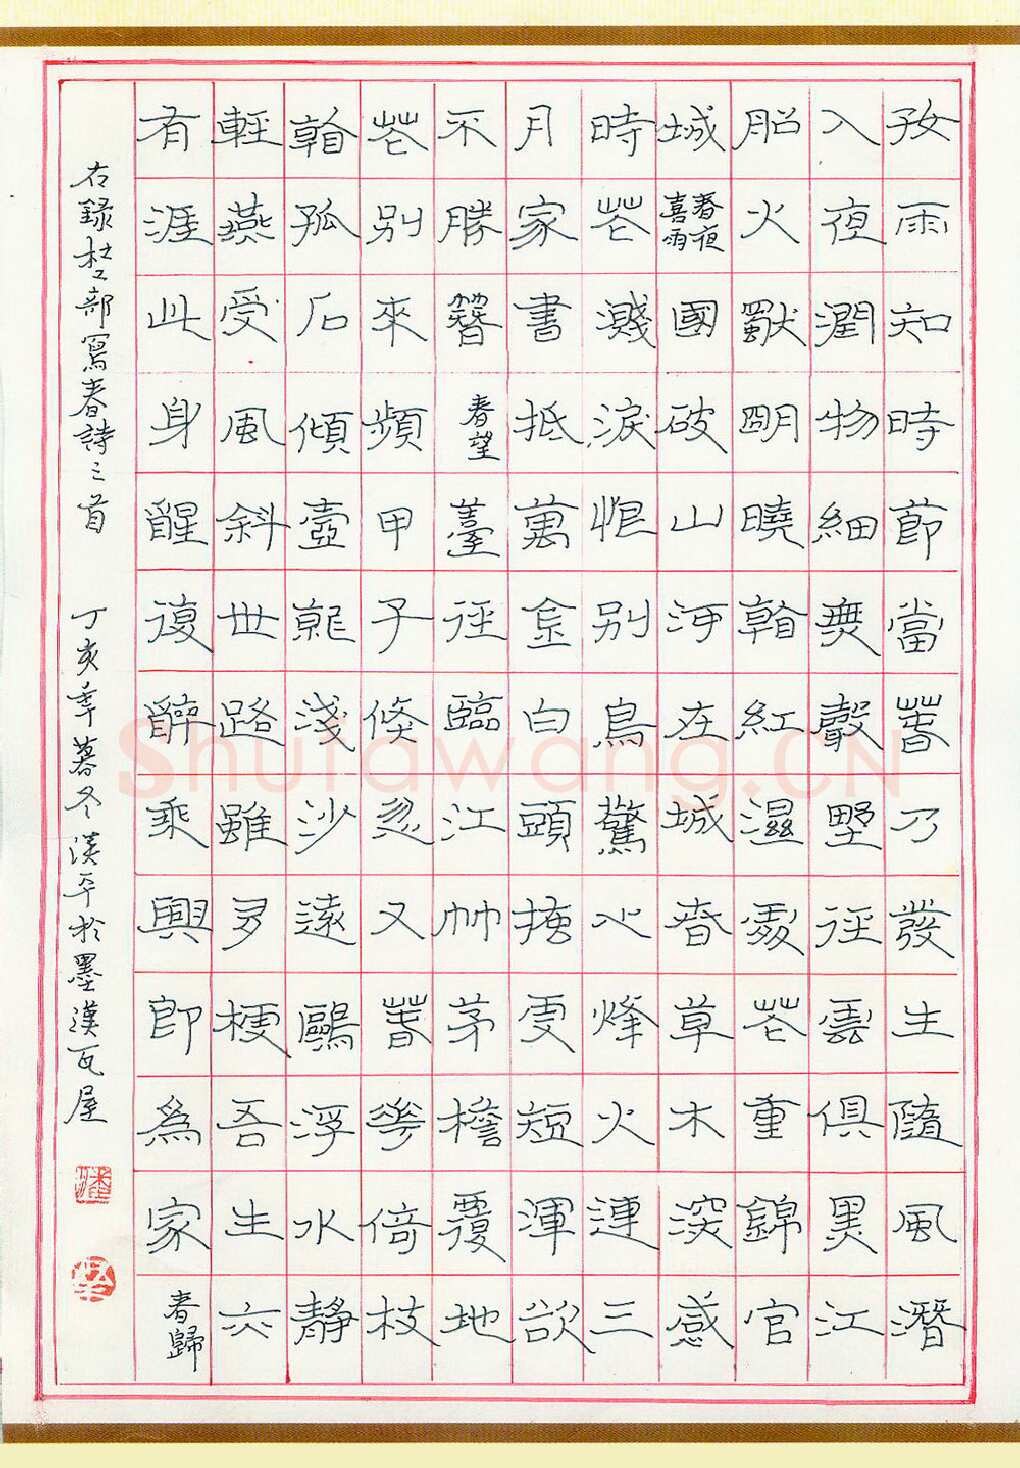 好雨知時節當春乃發生隨風潛
入夜潤物細無聲野徑雲俱黑江
船火獨明曉看紅濕處花重錦官
城春夜喜雨國破山河在城春草木深感
時花濺淚恨別鳥驚心烽火連三
月家書抵萬金白頭搔更短渾欲
不勝簪春望薹徑臨江竹茅檐覆地
花別來頻甲子倏忽又春華倚枝
看孤石傾壺就淺沙遠鷗浮水靜
輕燕受風斜世路雖多梗吾生亦
有涯此身醒復醉乘興即為家春歸
右錄杜工部寫春詩三首 丁亥年暮冬漢平於墨漢瓦屋
Shufawang.CN